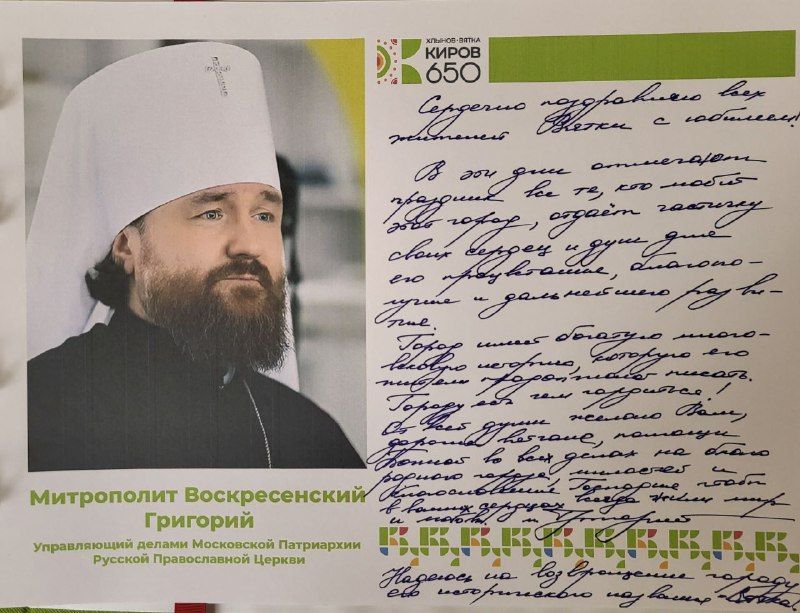 Митрополит Воскресенский
Григорий
Управляющий делами Московской Патриархии
Русской Православной Церкви
ХЛЫНОВ·ВЯТКА
КИРОВ
650
Сердечно поздравляю всех
жителей Вятки с юбилеем!
В эти дни отмечают
праздник все те, кто любит
этот город, отдаёт частичку
своих сердец и душ для
его процветание, благопо-
лучие и дальнейшего разви-
тие.
Город имеет богатую много-
вековую историю, которую его
жители продолжают писать.
Городу есть чем гордиться!
От всей души желаю Вам,
дорогие вятчане, помощи
Божией во всех делах на благо
родного города, милостей и
благословение Господне чтобы
в ваших сердцах всегда жили мир
и любовь. м. Григорий
Надеюсь на возвращение городу
его исторического названия - Вятка!